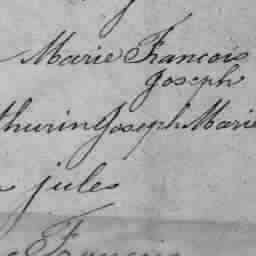 Marie Francois
Joseph
thurin Joseph Marie
jules
Francois